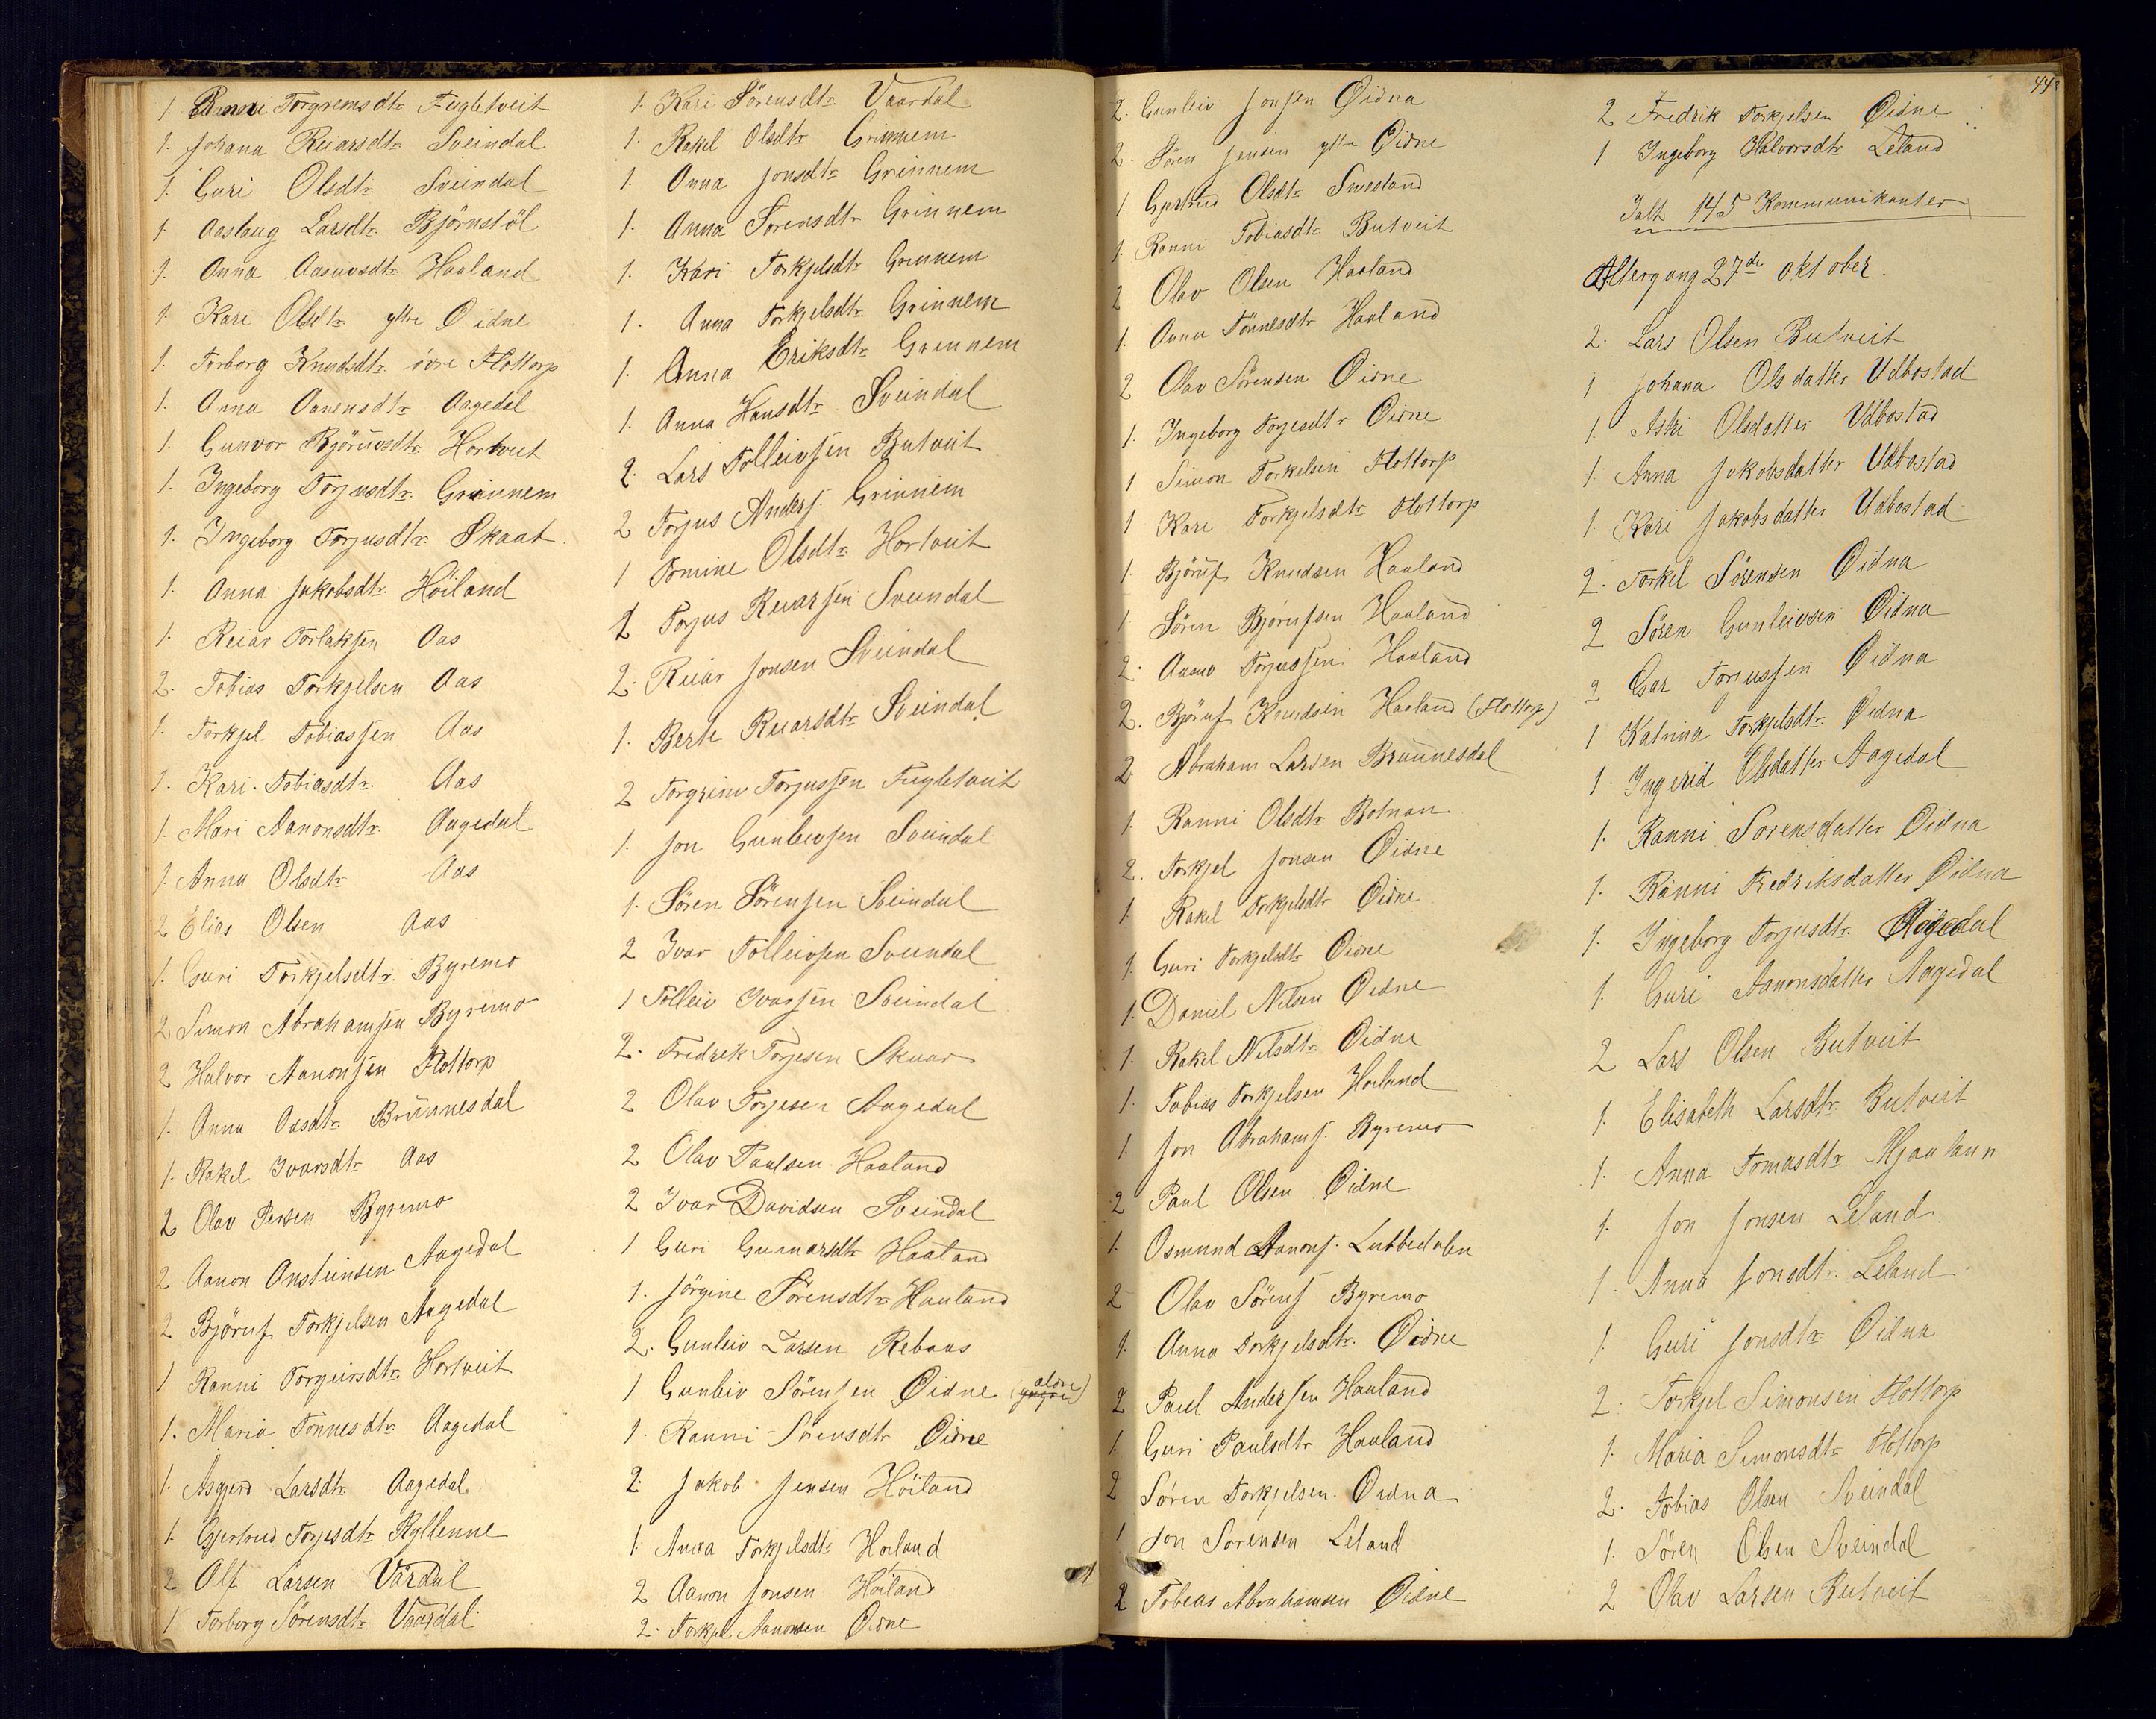 1. Ranni Torgrimsdtr Fugletveit
1. Johana Reiarsdtr Sveindal
1. Guri Olsdtr Sveindal
1. Aaslaug Larsdtr Björnstöl
1. Anna Aasuvsdtr Haaland
1. Kari Olsdtr yttre Öidne
1. Torborg Knudsdtr övre Flottorp
1. Anna Aanensdtr Aagedal
1. Gunvor Björuvsdtr Hortveit
1. Ingeborg Torjusdtr Grinnem
1. Ingeborg Torjusdtr Skaat
1. Anna Jakobsdtr Höiland
1. Reiar Torlaksen Aas
2. Tobias Torkjelsen Aas
1. Torkjel Tobiassen Aas
1. Kari Tobiasdtr Aas
1. Mari Aanonsdtr Aagedal
1. Anna Olsdtr Aas
2 Elias Olsen Aas
1. Guri Torkjelsdtr Byremo
2 Simon Abrahamsen Byremo
2 Halvor Aanonsen Flottorp
1. Anna Aasdtr Brünnesdal
1. Rakel Ivarsdtr Aas
2 Olav Persen Byremo
2 Aanon Ansteinsen Aagedal
2 Björuf Torkjelsen Aagedal
1 Ranni Torgeirsdtr Hortveit
1. Maria Tönnesdtr Aagedal
1. Asgjerd Larsdtr Aagedal
1. Gjertrud Torjesdtr Kyllenne
2 Alf Larsen Vardal
1 Torborg Sörensdtr Vaardal
1. Kari Sörensdtr Vaardal
1. Rakel Olsdtr Grinnem
1. Anna Jonsdtr Grinnem
1. Anna Sörensdtr Grinnem
1. Kari Torkjelsdtr Grinnem
1. Anna Torkjelsdtr Grinnem
1. Anna Eriksdtr Grinnem
1. Anna Hansdtr Sveindal
2. Lars Tolleivsen Butveit
2 Torjus Anders. Grinnem
1 Tomine Olsdtr Hortveit
2 Torjus Reiarsen Sveindal
2. Reiar Jonsen Sveindal
1. Berte Reiarsdtr Sveindal
2 Torgrim Torjussen Fugletveit
1. Jon Gunleivsen Sveindal
1. Sören Sörensen Sveindal
2 Ivar Tolleivsen Sveindal
1 Tolleiv Ivarsen Sveindal
2. Fredrik Torjesen Skaar
2 Olav Torjesen Aagedal
2 Olav Paulsen Haaland
2 Ivar Davidsen Sveindal
1 Guri Gunnarsdtr Haaland
1. Jörgine Sörensdtr Haaland
2. Gunleiv Larsen Rebaas
1 Gunleiv Sörensen Öidne (yngre aldre)
1. Ranni Sörensdtr Öidne
2. Jakob Jensen Höiland
1. Anna Torkjelsdtr Höiland
2 Aanon Jonsen Höiland
2. Torkjel Aanonsen Öidne
2. Gunleiv Jonsen Öidna
2. Sören Jensen yttre Öidne
1. Gjertrud Olsdtr
1. Ranni Tobiasdtr Butveit
2 Olav Olsen Haaland
1. Anna Tönnesdtr Haaland
2 Olav Sörensen Öidne
1. Ingeborg Torjesdtr Öidne
1 Simon Torkelsen Flottorp
1 Kari Torkjelsdtr Flottorp
1. Björuf Knudsen Haaland
1 Sören Björufsen Haaland
2. Aasuv Torjussen Haaland
2. Björuf Knudsen Haaland (Flottorp)
2 Abraham Larsen Brünnesdal
1. Ranni Olsdtr Botnan
2. Torkjel Jonsen Öidne
1. Rakel Torkjelsdtr Öidne
1. Guri Torkjelsdtr Öidne
1. Daniel Nilsen Öidne
1. Rakel Nilsdtr Öidne
1. Tobias Torkjelsen Höiland
1. Jon Abrahams. Byremo
2 Paul Olsen Öidne
1. Osmund Aanons. Lubbedalen
2 Olav Sörens Byremo
1. Anna Torkjelsdtr Öidne
2 Paul Andersen Haaland
1. Guri Paulsdtr Haaland
2 Sören Torkjelsen Öidna
1 Jon Sörensen Leland
2 Tobias Abrahamsen Öidne
442
2 Fredrik Torkjelsen Öidne
1 Ingeborg Halvorsdtr Leland
Ialt 145 Kommunikanter
Altergang 27de oktober.
2. Lars Olsen Butveit
1 Johana Olsdatter Udbostad
1. Aslri Olsdatter Udbostad
1. Anna Jakobsdatter Udbostad
1. Kari Jakobsdatter Udbostad
2. Torkel Sörensen Öidna
2 Sören Gunleivsen Öidna
2 Torjussen Öidna
1 Katrina Torkjelsdtr Öidna
1. Ingerid Olsdatter Aagedal
1. Ranni Sörensdatter Öidna
1. Ranni Fredriksdatter Öidna
1. Ingeborg Torjusdtr Aagedal
1. Guri Aanonsdatter Aagedal
2 Lars Olsen Butveit
1. Elisabeth Larsdtr Butveit
1. Anna Tomasdtr Mjaaland
1. Jon Jonsen Leland
1. Anna Jonsdtr Leland
1. Guri Jonsdtr Öidna
2. Torkjel Simonsen Flottorp
1. Maria Simonsdtr Flottorp
2. Tobias Olsen Sveindal
1. Sören Olsen Sveindal
2 Olav Larsen Butveit